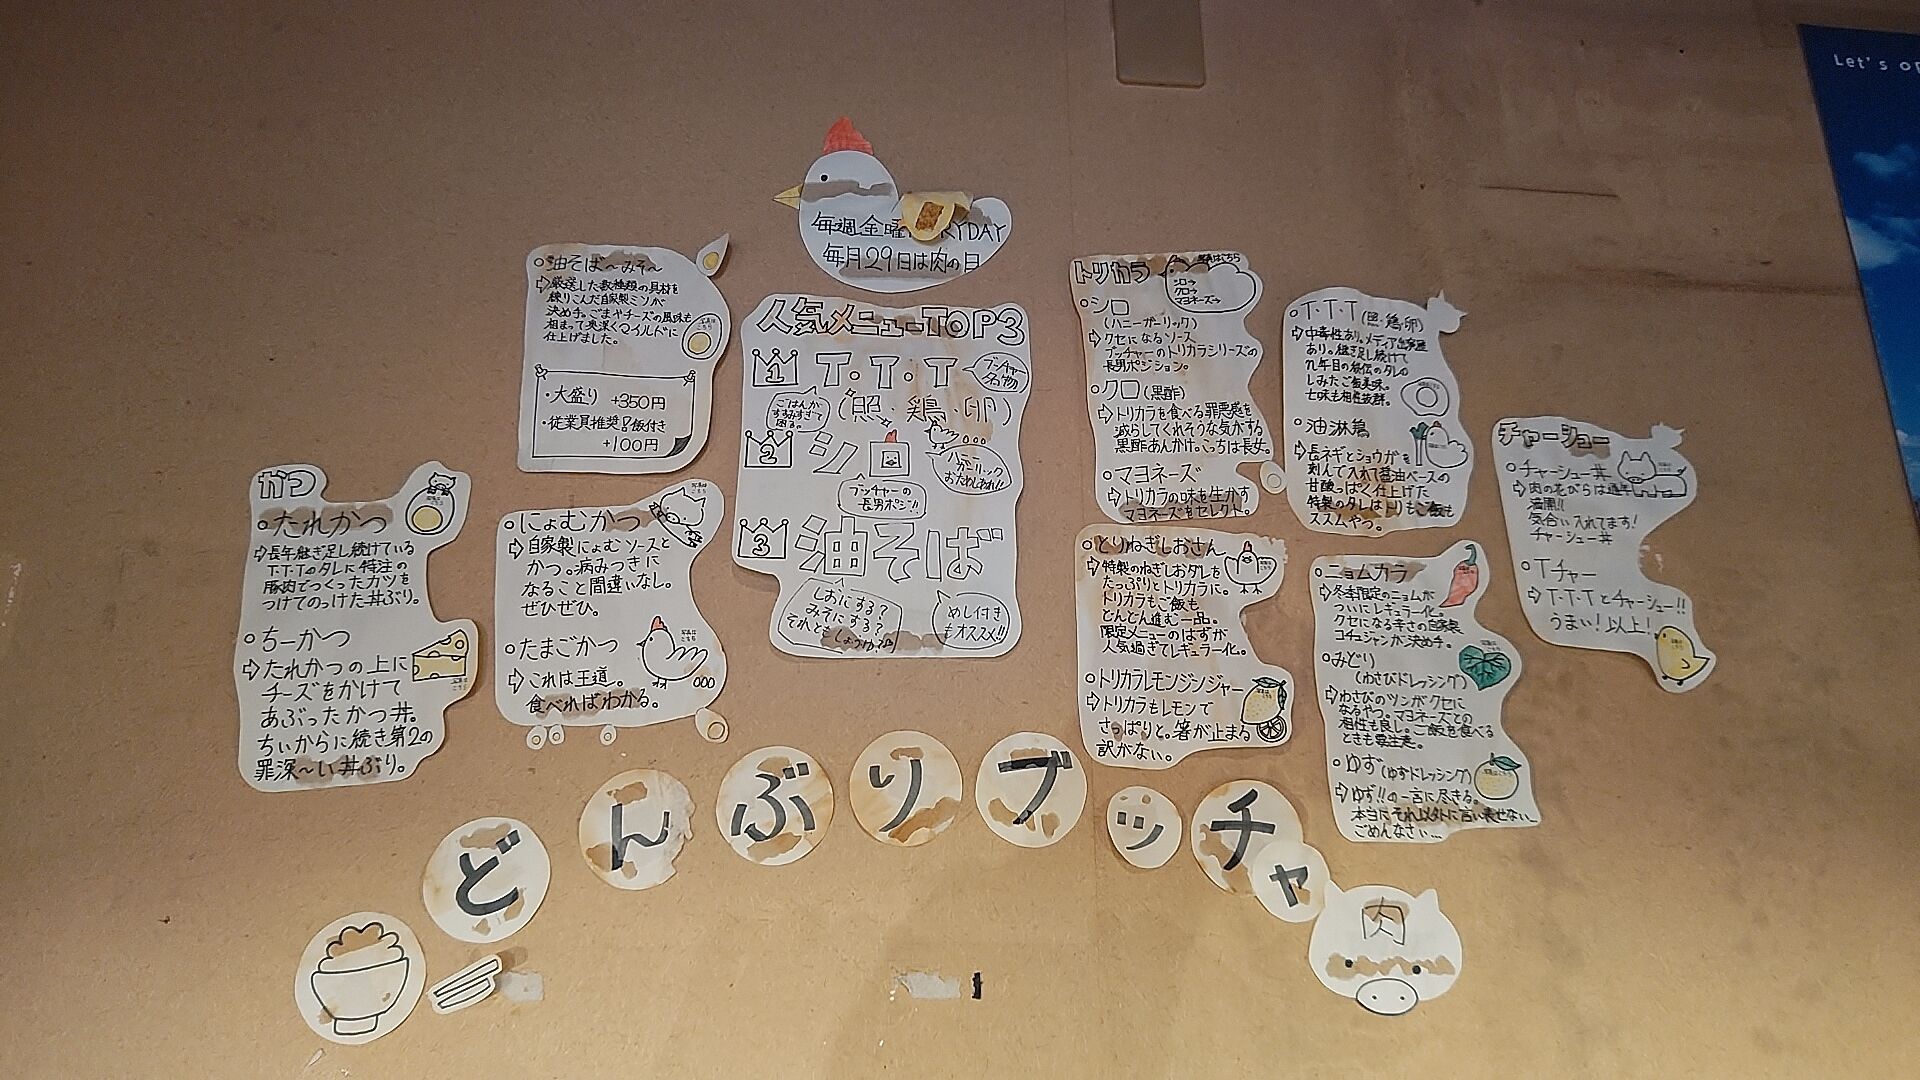 Let's op
毎週金曜 RYDAY
毎月29日は肉の日
かつ
○たれかつ
⇨長年継ぎ足し続けている
T・T・Tのタレに特注の
豚肉でつくったカツを
つけてのっけた丼ぶり。
○ちーかつ
⇨たれかつの上に
チーズをかけて
あぶったかつ丼。
ちぃからに続き第2の
罪深〜い丼ぶり。
○油そば〜みそ〜
⇨厳選した数種類の具材を
練りこんだ自家製ミソが
決め手。ごまやチーズの風味も
相まって奥深くマイルドに
仕上げました。
・大盛り +350円
・従業員推奨!飯付き
+100円
○にょむかつ
⇨自家製にょむソースと
かつ。病みつきに
なること間違いなし。
ぜひぜひ。
○たまごかつ
⇨これは王道。
食べればわかる。
人気メニューTOP3
1 T.T.T
ブッチャー名物
ごはんが
すすみすぎて
困る。
(照・鶏・卵)
2 シロ
ハニー
ガーリック
おためしあれ!!
ブッチャーの
長男ポジ!!
3 油そば
しおにする?
みそにする?
それともしょうゆ?
めし付き
もオススメ!!
トリカラ
写真はこちら
シロ→
クロ→
マヨネーズ→
○シロ
(ハニーガーリック)
⇨クセになるソース
ブッチャーのトリカラシリーズの
長男ポジション。
○クロ(黒酢)
⇨トリカラを食べる罪悪感を
減らしてくれそうな気がする
黒酢あんかけ。こっちは長女。
○マヨネーズ
⇨トリカラの味を生かす
マヨネーズをセレクト。
○とりねぎしおさん
⇨特製のねぎしおダレを
たっぷりとトリカラに。
トリカラもご飯も
どんどん進む一品。
限定メニューのはずが
人気過ぎてレギュラー化。
○トリカラレモンジンジャー
⇨トリカラもレモンで
さっぱりと。箸が止まる
訳がない。
○T・T・T(照・鶏・卵)
⇨中毒性あり。メディア出演歴
あり。継ぎ足し続けて
九年目の秘伝のタレの
しみたご飯美味。
七味も相性抜群。
○油淋鶏
⇨長ネギとショウガを
刻んで入れて醤油ベースの
甘酸っぱく仕上げた
特製のタレはトリもご飯も
ススムやつ。
○ニョムカラ
⇨冬季限定のニョムが
ついにレギュラー化。
クセになる辛さの自家製
コチュジャンが決め手。
○みどり
(わさびドレッシング)
⇨わさびのツンがクセに
なるやつ。マヨネーズとの
相性も良し。ご飯を食べる
ときも要注意。
○ゆず(ゆずドレッシング)
⇨ゆず!!の一言に尽きる。
本当にそれ以外に言い表せない…
ごめんなさい…
チャーシュー
○チャーシュー丼
⇨肉の花びらは通年
満開!!
気合い入れてます!
チャーシュー丼
○Tチャー
⇨T・T・Tとチャーシュー!!
うまい!以上!
どんぶりブッチャ
肉